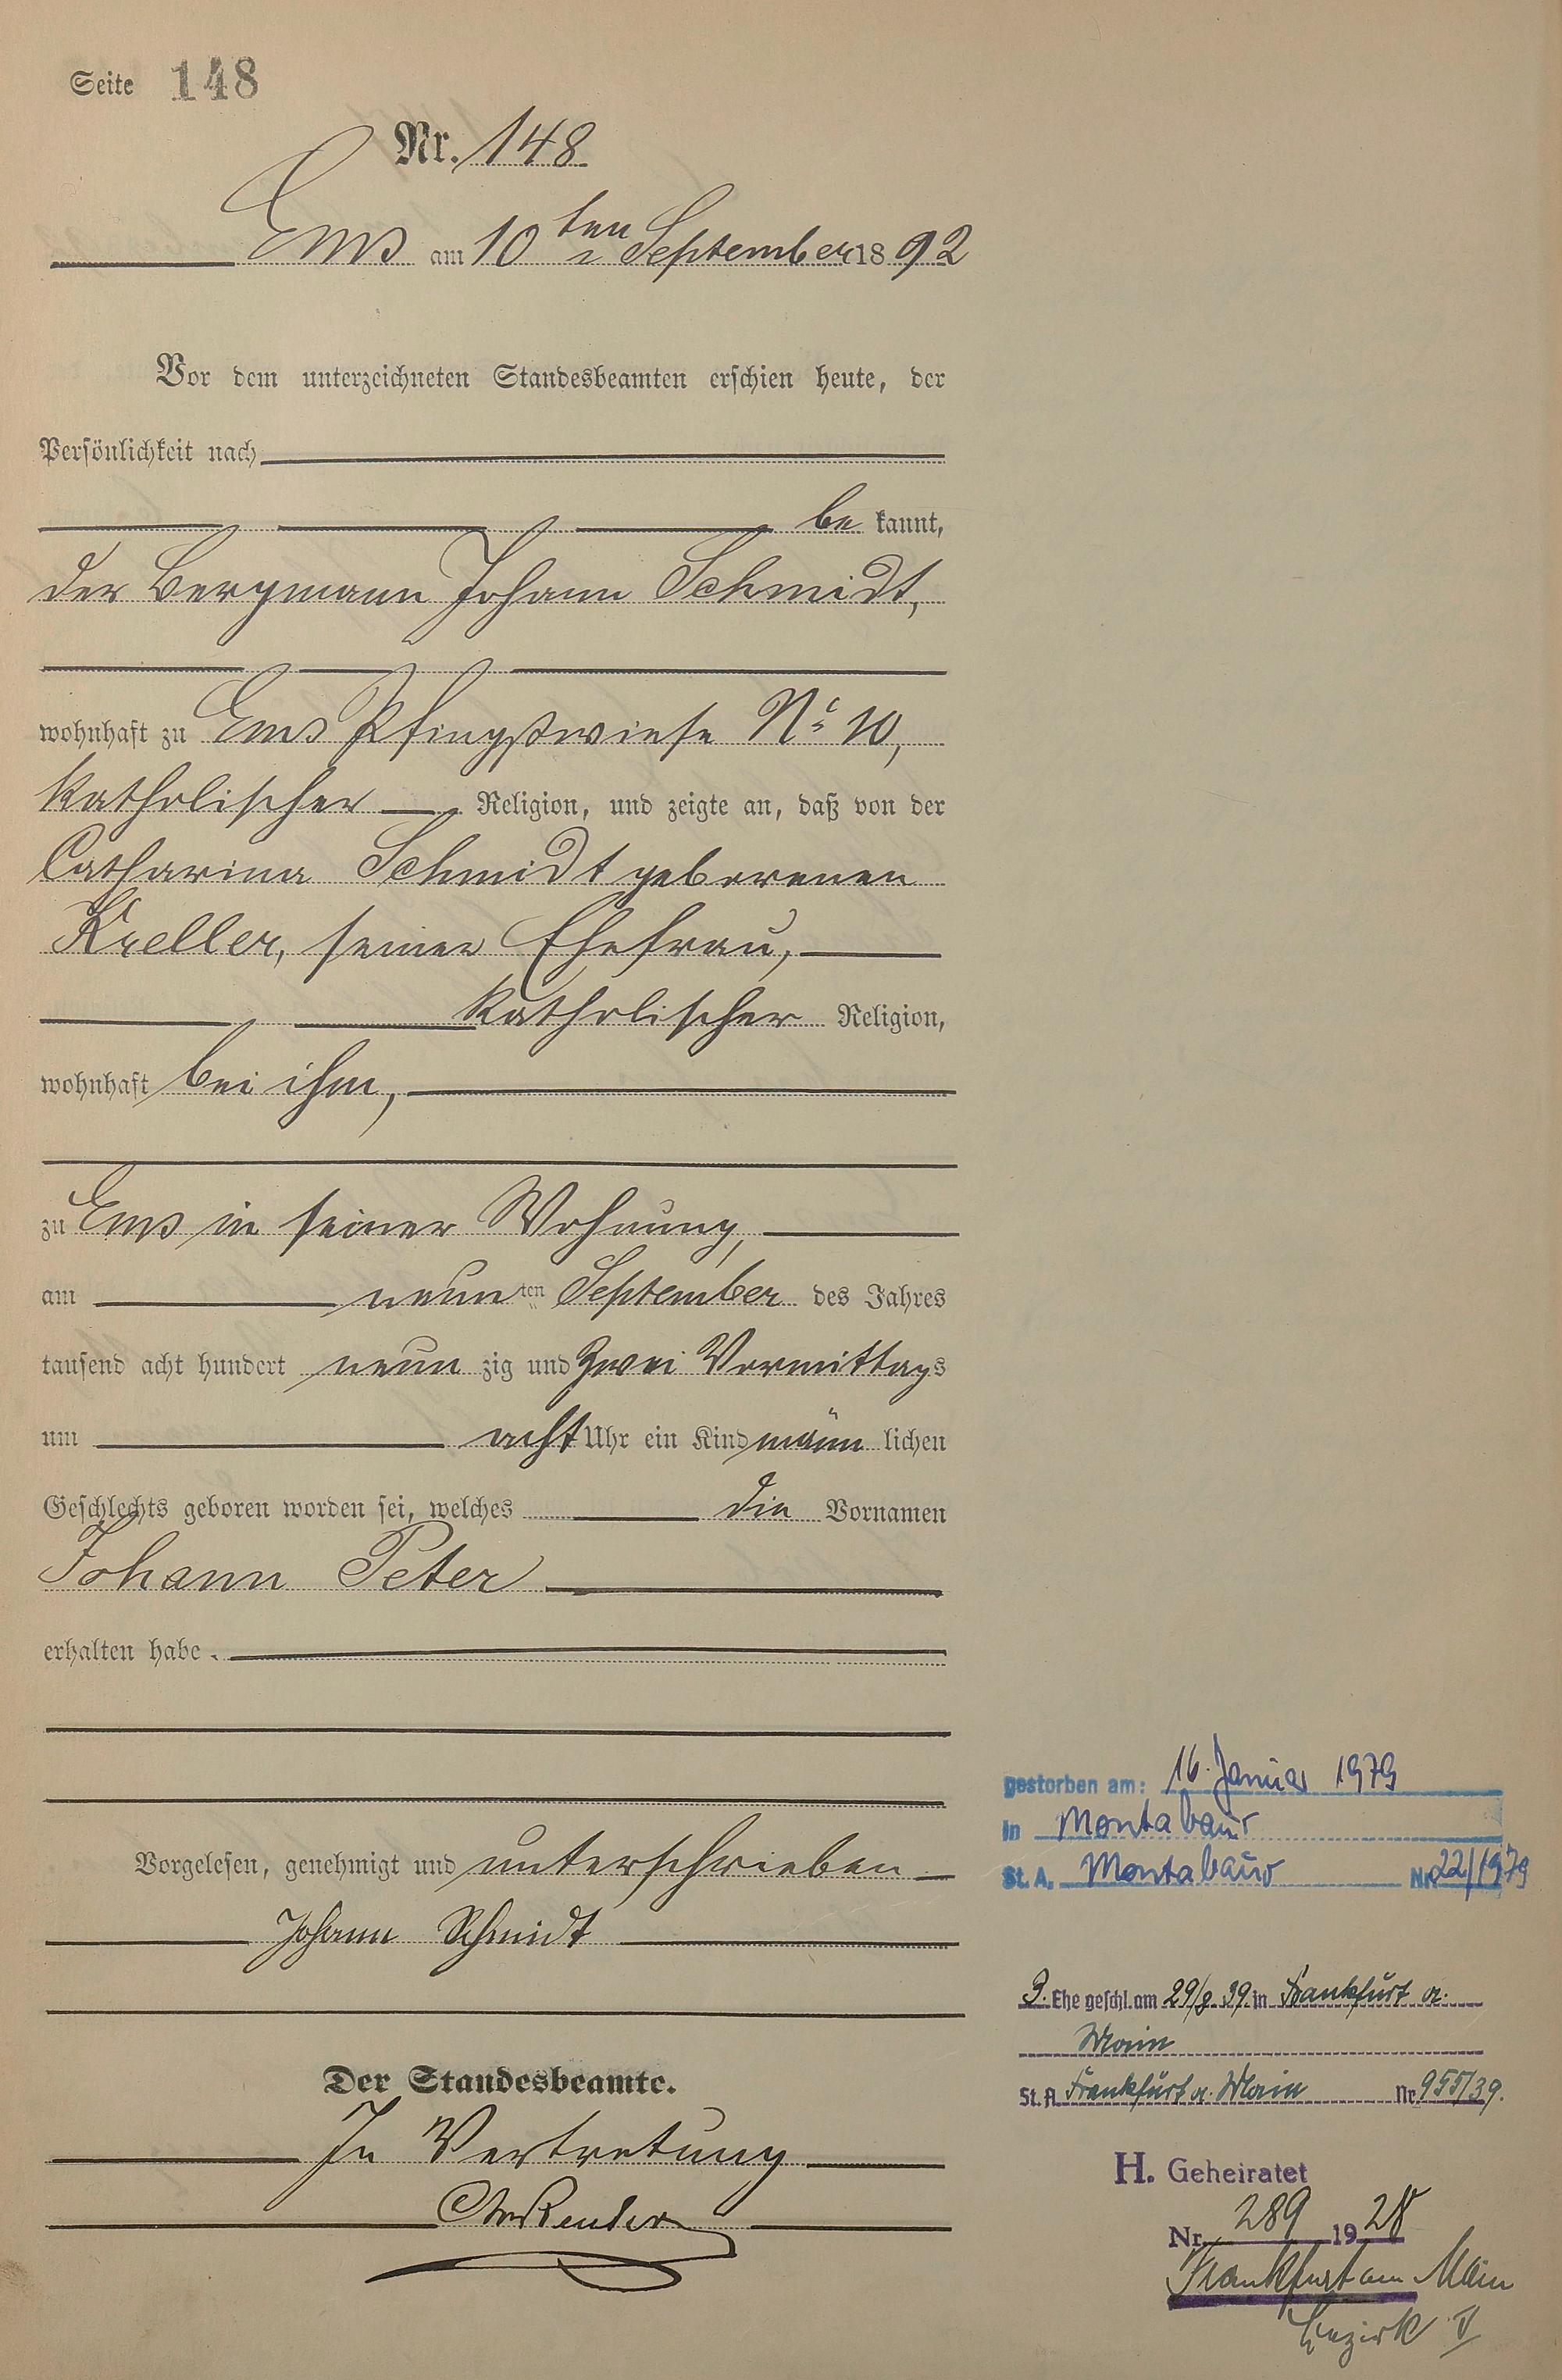 Seite 148
Nr. 148
Ems am 10ten September 1892
Vor dem unterzeichneten Standesbeamten erschien heute, der
Persönlichkeit nach
be kannt,
der Bergmann Johann Schmidt,
wohnhaft zu Ems Pfingstwiese No 10,
katholischer Religion, und zeigte an, daß von der
Catharina Schmidt geborenen
Kreller, seiner Ehefrau,
katholischer Religion,
wohnhaft bei ihm,
zu Ems in seiner Wohnung,
am neunten September des Jahres
tausend acht hundert neun zig und zwei Vormittags
um acht Uhr ein Kind männ lichen
Geschlechts geboren worden sei, welches die Vornamen
Johann Peter
erhalten habe.
Vorgelesen, genehmigt und unterschrieben
Johann Schmidt
Der Standesbeamte.
In Vertretung
gestorben am: 16. Januar 1979
in Montabaur
St. A. Montabaur Nr. 22/1979
3. Ehe geschl. am 29/8. 39. in Frankfurt a.
Main
St. A. Frankfurt a. Main Nr. 955/39.
H. Geheiratet
Nr. 289 1928
Frankfurt am Main
Bezirk V